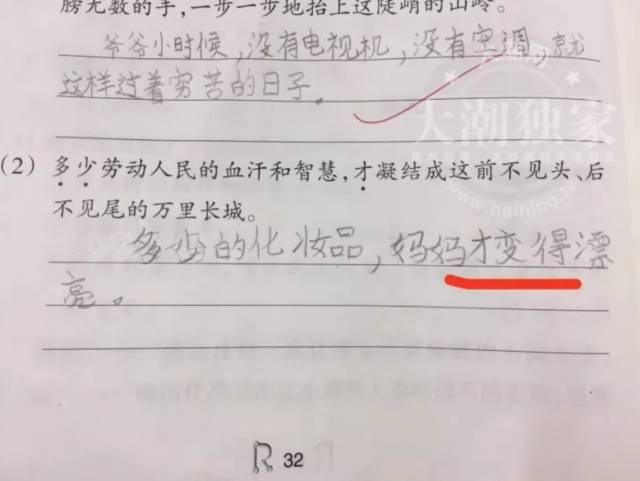 膀无数的手,一步一步地抬上这陡峭的山岭。
爷爷小时候,没有电视机,没有空调,就
这样过着穷苦的日子。
大潮独家
(2) 多少劳动人民的血汗和智慧,才凝结成这前不见头、后
www.haining.
不见尾的万里长城。
多少的化妆品,妈妈才变得漂
亮。
R 32